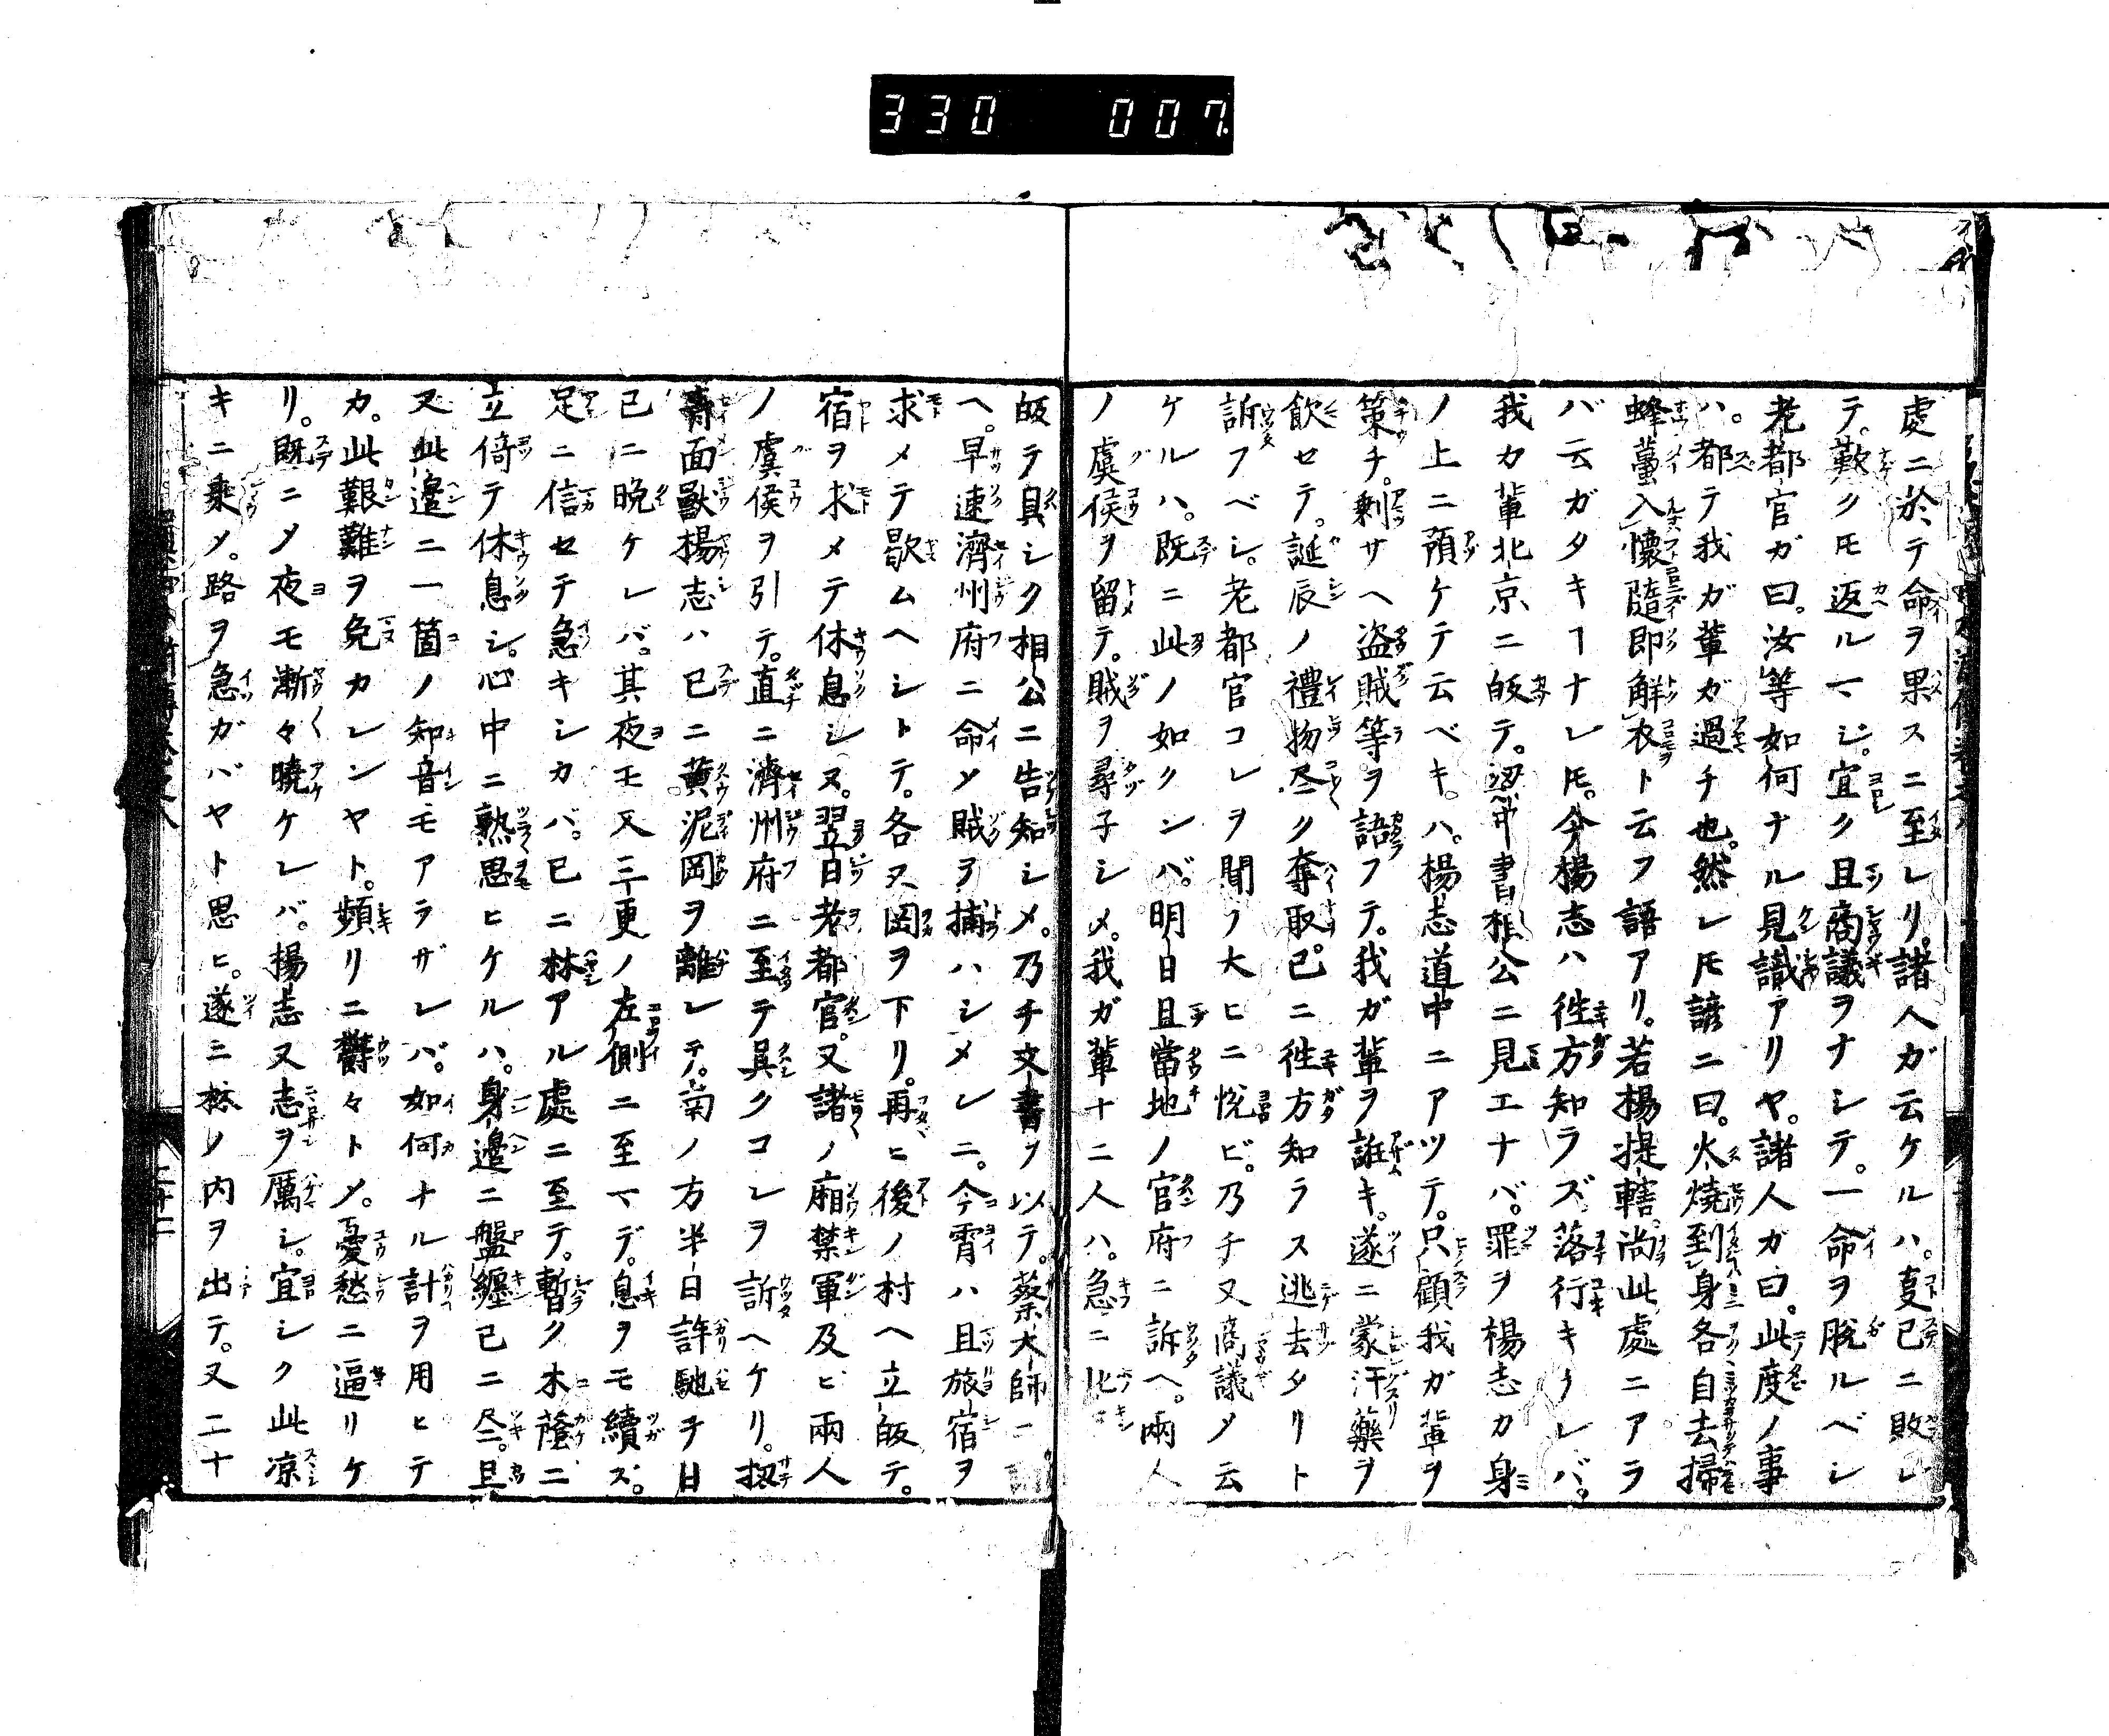 330 007
處ニ於テ命ヲ果スニ至レリ。諸人ガ云ケルハ。叓已ニ敗レ
テ。歎クモ返ルマジ。宜ク且商議ヲナシテ。一命ヲ脱ルベシ
老都官ガ曰。汝等如何ナル見識アリヤ。諸人ガ曰。此度ノ事
ハ。都テ我ガ輩ガ過チ也。然レ𪜈諺ニ曰。火燒到身各自去掃
蜂蠆入懷隨即解衣ト云フ語アリ。若楊提轄。尚此處ニアラ
バ云ガタキヿナレ𪜈。今楊志ハ徃方知ラズ落行キケレバ。
我カ輩北京ニ皈テ。梁中書相公ニ見エナバ。罪ヲ楊志カ身
ノ上ニ預ケテ云ベキハ。楊志道中ニアツテ。只顧我ガ輩ヲ
策チ。剰サヘ盗賊等ヲ語フテ。我ガ輩ヲ誑キ。遂ニ蒙汗藥ヲ
飲セテ。誕辰ノ禮物尽ク奪取。已ニ徃方知ラス逃去タリト
訴フベシ。老都官コレヲ聞ノ大ヒニ悅ビ。乃チ又商議メ云
ケルハ。既ニ此ノ如クンバ。明日且當地ノ官府ニ訴ヘ。兩人
ノ虞侯ヲ留テ。賊ヲ尋子シメ。我ガ輩十二人ハ。急ニ北京
皈テ具シク相公ニ告知シメ。乃チ文書ヲ以テ。蔡大師ニ
ヘ。早速濟州府ニ命メ賊ヲ捕ハシメレニ。今宵ハ且旅宿ヲ
求メテ歇ムヘシトテ。各又岡ヲ下リ。再ヒ後ノ村ヘ立皈テ。
宿ヲ求メテ休息シヌ。翌日老都官。又諸ノ廂禁軍及ビ兩人
ノ虞侯ヲ引テ。直ニ濟州府ニ至テ具クコレヲ訴ヘケリ。扨
青面獸楊志ハ已ニ黄泥岡ヲ離レテ。南ノ方半日許馳チ日
已ニ晚ケレバ。其夜モ又三更ノ左側ニ至マデ。息ヲモ續ズ。
足ニ信セテ急キシカバ。已ニ林アル處ニ至テ。暫ク木蔭ニ
立倚テ休息シ。心中ニ熟思ヒケルハ。身邉ニ盤纏已ニ尽。且
又此邉ニ一箇ノ知音モアラザレバ。如何ナル計ヲ用ヒテ
カ。此艱難ヲ免カレンヤト。頻リニ欝々トメ。憂愁ニ逼リケ
リ。既ニメ夜モ漸々曉ケレバ。揚志又志ヲ厲シ。宜シク此凉
キニ乘メ。路ヲ急ガバヤト思ヒ。遂ニ林ノ内ヲ出テ。又二十